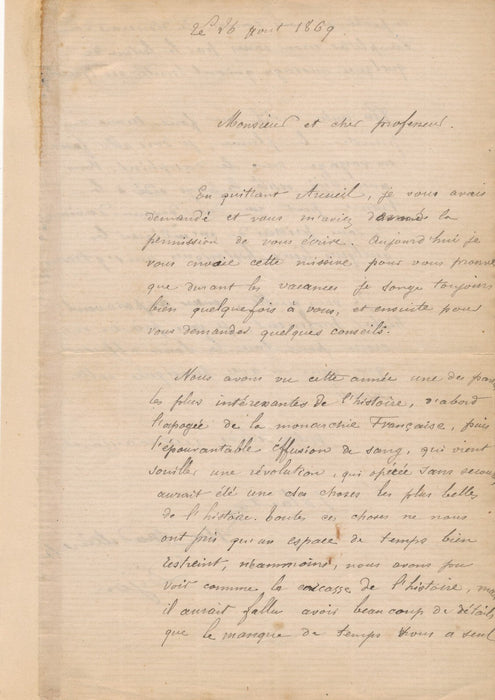 le 26 Aout 1869.
Monsieur et cher professeur.
En quittant Arcueil, je vous avais
demandé et vous m'aviez donné la
permission de vous écrire. Aujourd'hui je
vous envoie cette missive pour vous prouver
que durant les vacances je songe toujours
bien quelquefois à vous, et ensuite pour
vous demander quelques conseils.
Nous avons vu cette année une des par
les plus intéressantes de l'histoire, d'abord
l'apogée de la monarchie Française, puis
l'épouvantable éffusion de sang, qui vient
souiller une révolution, qui opérée sans secous
aurait été une des choses les plus belles
de l'histoire. Toutes ces choses ne nous
ont pris qu'un espace de temps bien
restreint, néanmoins, nous avons pu
voir comme la carcasse de l'histoire, mais
il aurait fallu avoir beaucoup de détails
que le manque de temps vous a seul